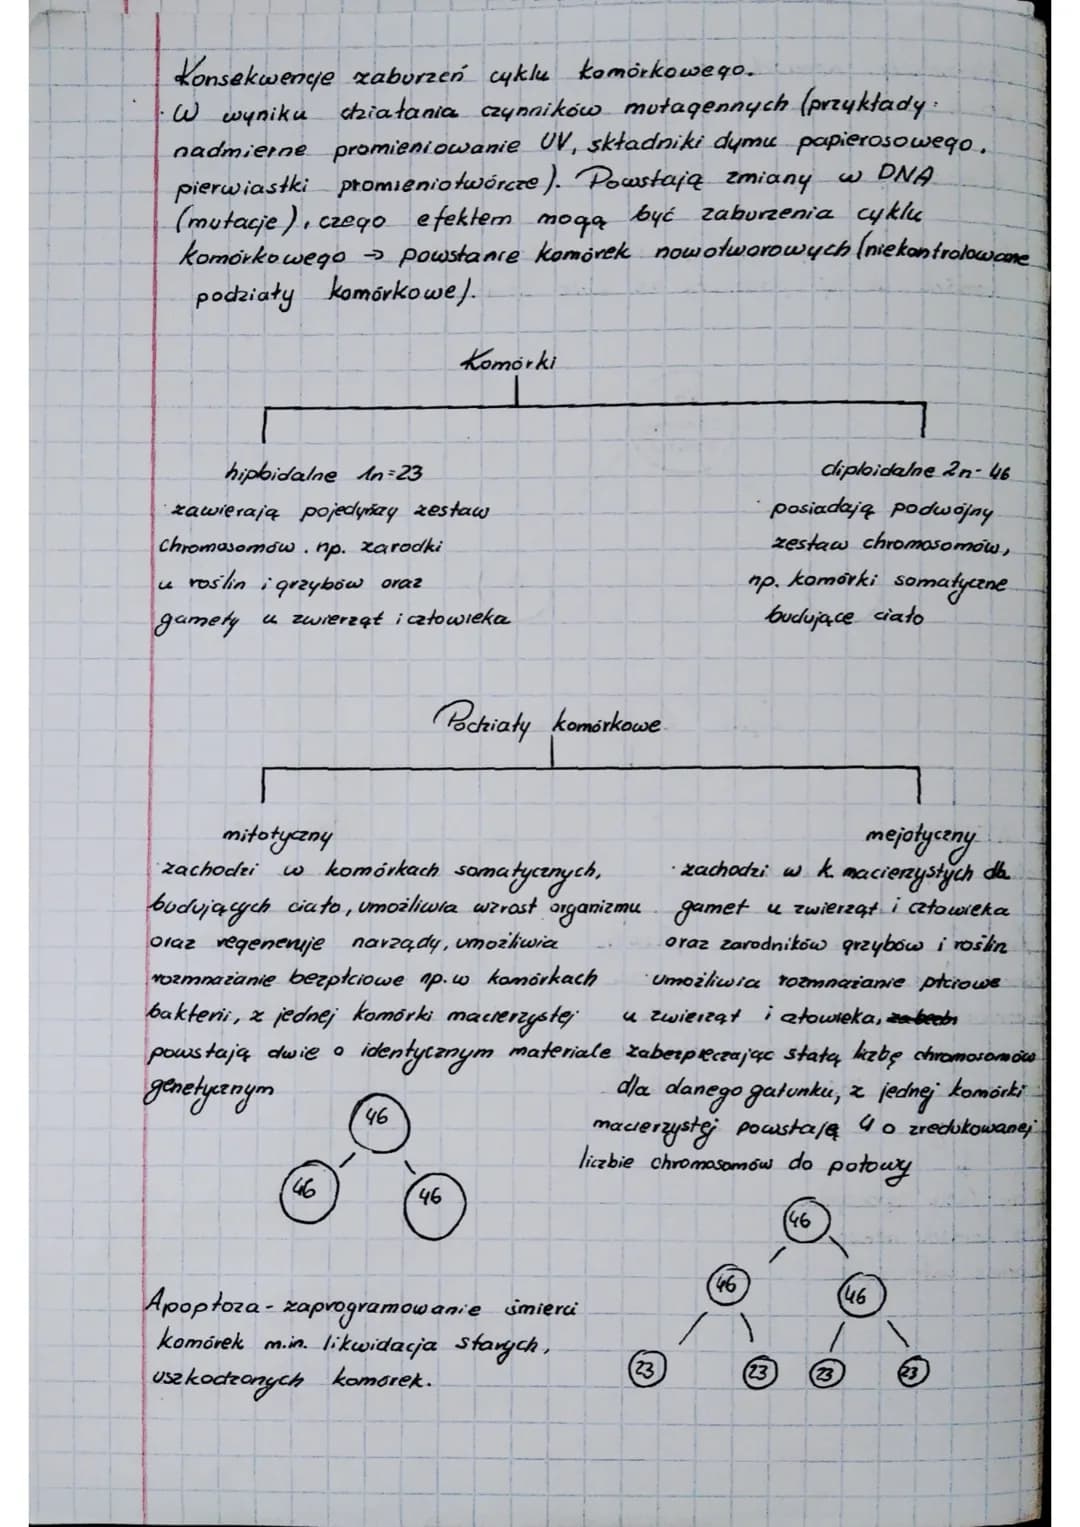 Konsekwencje zaburzeń cyklu komórkowego.
W wyniku działania czynników mutagennych (przykłady:
nadmierne promieniowanie UV, składniki dymu papierosowego,
pierwiastki promieniotwórcze). Powstają zmiany w DNA
(mutacje), czego efektem mogą być zaburzenia cyklu
komórkowego → powstanie komórek nowotworowych (niekontrolowane
podziały komórkowe).
Komórki
hiploidalne 1n=23
zawierają pojedynczy zestaw
chromosomów. np. zarodki
u roślin i grzybów oraz
gamety u zwierząt i człowieka
diploidalne 2n-46
posiadają podwójny
zestaw chromosomów,
np. komórki somatyczne
budujące ciało
Podziały komórkowe
mitotyczny
zachodzi w komórkach somatycznych,
budujących ciało, umożliwia wzrost organizmu
oraz regeneruje narządy, umożliwia
rozmnażanie bezpłciowe np. w komórkach
bakterii, z jednej komórki macierzystej
powstają dwie o identycznym materiale
genetycznym
46
46
46
mejotyczny
zachodzi w k. macierzystych dla
gamet u zwierząt i człowieka
oraz zarodników grzybów i roślin
umożliwia rozmnażanie płciowe
u zwierząt i człowieka,
zabezpieczając stałą liczbę chromosomów
dla danego gatunku, z jednej komórki
macierzystej powstają 4 o zredukowanej
liczbie chromosomów do połowy
46
46
46
23
23
23
23
Apoptoza - zaprogramowanie śmierci
komórek m.in. likwidacja starych,
uszkodzonych komórek.